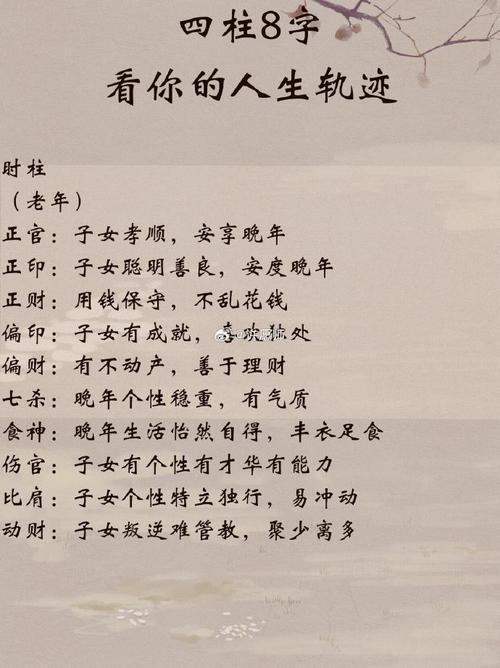 四柱8字
看你的人生轨迹
时柱
（老年）
正官：子女孝顺，安享晚年
正印：子女聪明善良，安度晚年
正财：用钱保守，不乱花钱
偏印：子女有成就，喜欢独处
偏财：有不动产，善于理财
七杀：晚年个性稳重，有气质
食神：晚年生活怡然自得，丰衣足食
伤官：子女有个性有才华有能力
比肩：子女个性特立独行，易冲动
动财：子女叛逆难管教，聚少离多